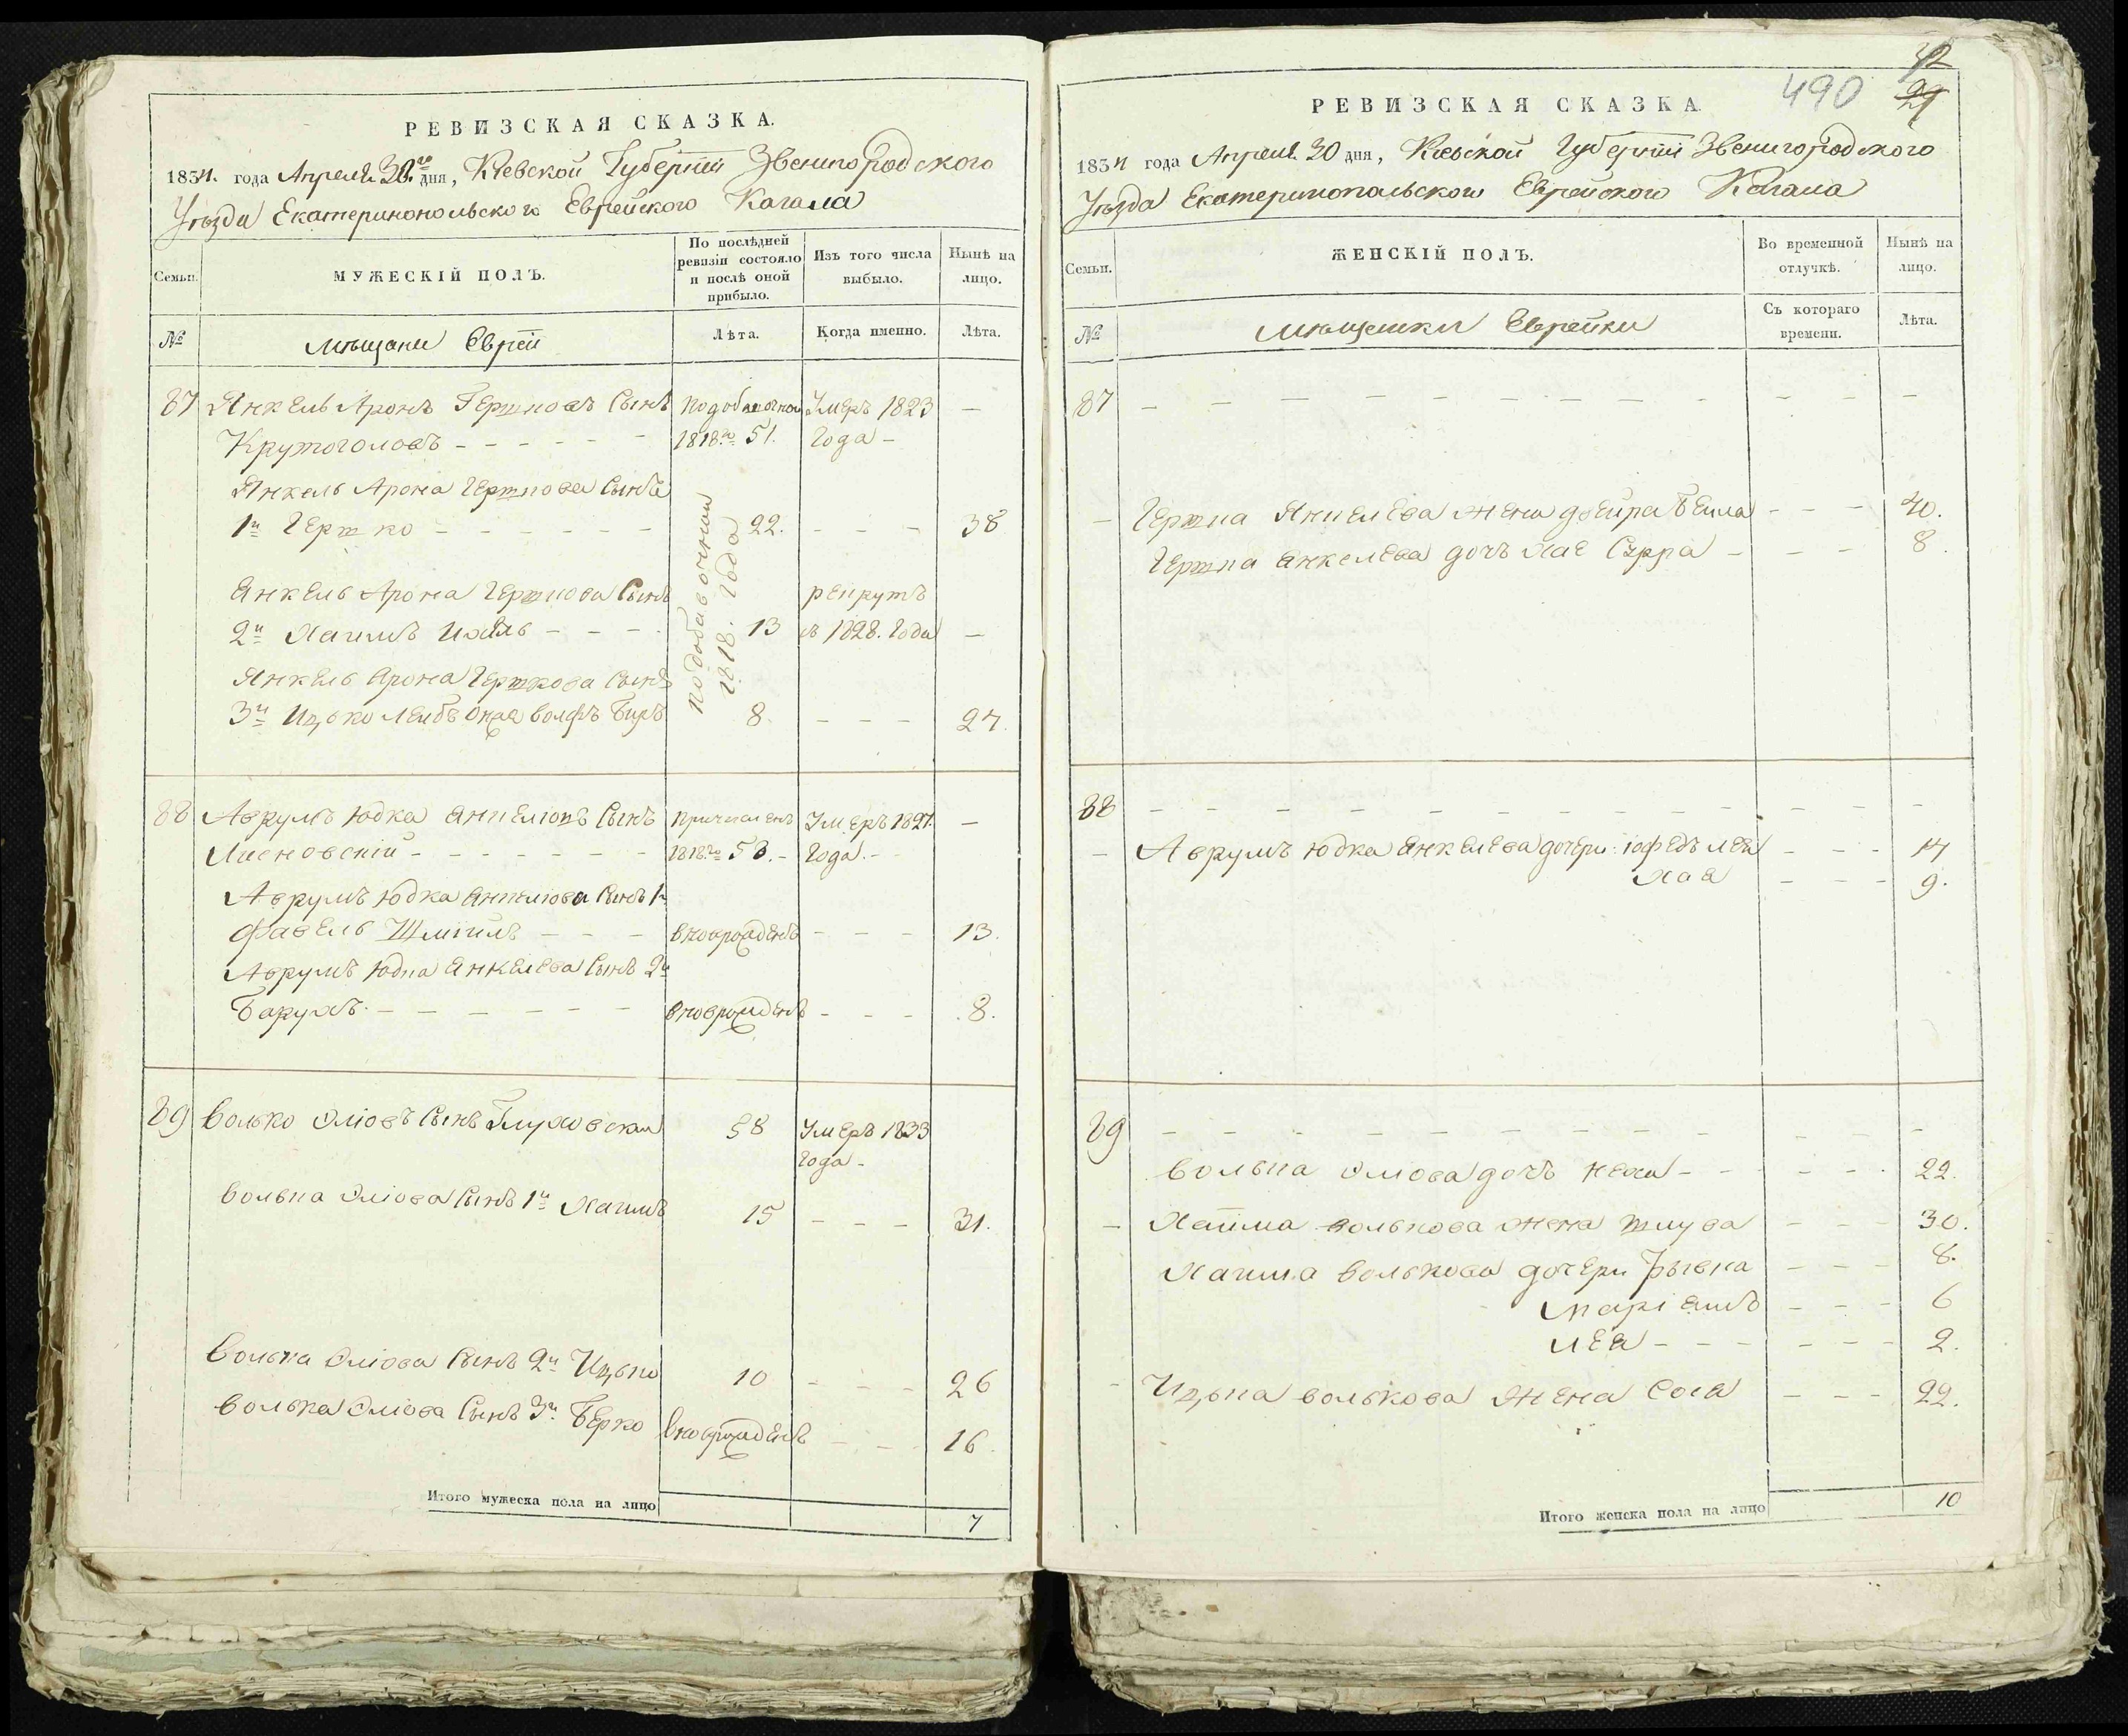 РЕВИЗСКАЯ СКАЗКА.
1834. года Апреля 30.го дня, Киевской Губернiи Звенигородского
Уѣзда Екатеринопольского Еврейского Кагала
Семьи.
МУЖЕСКIЙ ПОЛЪ.
По послѣдней ревизiи состояло и послѣ оной прибыло.
Изъ того числа выбыло.
Нынѣ на лицо.
№
мѣщане Еврей
Лѣта.
Когда именно.
Лѣта.
87 Янкель Аронъ Гершковъ Сынъ подобавочной Умеръ 1823 —
Крутоголовъ - - - - - - 1818.го 51. Года -
Янкель Арона Гершкова Сынъ
1й Гершко - - - - - - 22. - - - 38
подобавочной 1818. Года
Янкель Арона Гершкова Сынъ рекрутъ
2й Хаимъ - - - - 13 въ 1828. Года —
Янкель Арона Гершкова Сынъ
3й Ицько Лейбъ Волфъ Беръ 8. - - - 27.
88 Аврумъ Юдка Сынъ причисленъ Умеръ 1827. —
Лисновскiй - - - - - - - 1818.го 53. - Года. -
Аврумъ Юдка Сынъ 1й
Фавель - - - вновьрожденъ - - - 13.
Аврумъ Юдка Янкелева Сынъ 2й
Барухъ. - - - - - - - вновьрожденъ - - - 8.
89 Волько Элiовъ Сынъ Глуховский 58 Умеръ 1833
Года -
Волька Элiова Сынъ 1й Хаимъ 15 - - - 31.
Волька Элiова Сынъ 2й Ицько 10 - - - 26
Волька Элiова Сынъ 3й Берко вновьрожденъ - - - 16.
Итого мужеска пола на лицо
7
42
490 29
РЕВИЗСКАЯ СКАЗКА.
1834 года Апреля 30 дня, Киевской Губернiи Звенигородского
Уѣзда Екатеринопольского Еврейского Кагала
Семьи.
ЖЕНСКIЙ ПОЛЪ.
Во временной отлучкѣ.
Нынѣ на лицо.
№
мѣщанки Еврейки
Съ котораго времени.
Лѣта.
87 - - - - - - - - - - - - -
- Гершка Янкелева жена Двейра Бейла - - - 40.
Гершка Янкелева дочь Хае Сурра - - - 8.
88 - - - - - - - - - - - - -
- Аврумъ Юдка Янкелева дочери: Лея - - - 17
Хая - - - 9.
89 - - - - - - - - - - - - -
Волька Элiова дочь Неха - - - - - 22.
- Хаима Волькова жена - - - 30.
Хаима Волькова дочери Рывка - - - 8.
Марiемъ - - - 6
Лея - - - - - - 2.
- Ицька Волькова жена Сося - - - 22.
Итого женска пола на лицо
10